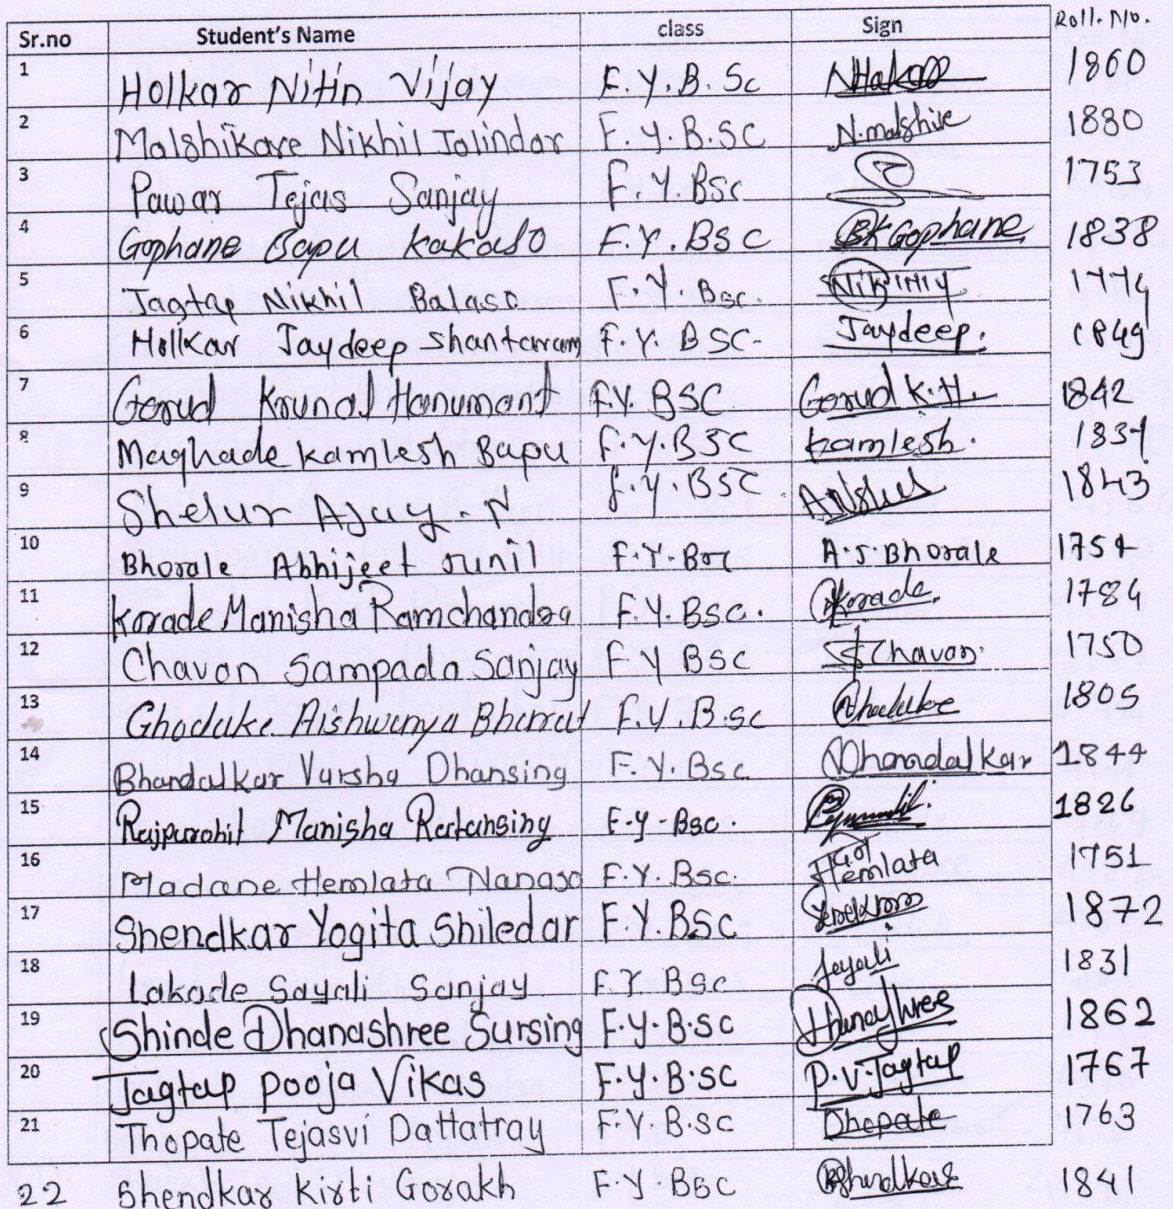 Sr.no Student's Name class Sign Roll. No.
1 Holkar Nitin Vijay F.Y.B.Sc 1860
2 Malshikare Nikhil Jalindar F.Y.B.SC N.malshike 1880
3 Pawar Tejas Sanjay F.Y.BSc 1753
4 Gophane Bapu Kakaso F.Y.BSC BK Gophane 1838
5 Jagtap Nikhil Balaso F.Y.Bsc. 1774
6 Holkar Jaydeep Shantaram F.Y.BSC. Jaydeep. 1849
7 Gorud Krunal Hanumant F.Y.BSC Gorud K.H. 1842
8 Maghade Kamlesh Bapu F.Y.BSC Kamlesh. 1837
9 Shelur Ajay F.Y.BSC 1843
10 Bhorale Abhijeet Sunil F.Y.Bsc A.S.Bhorale 1754
11 Korade Manisha Ramchandra F.Y.BSC. Korade. 1784
12 Chavan Sampada Sanjay F.Y BSC Chavan 1750
13 Ghodake Aishwarya Bharat F.Y.B.Sc Ghodake 1805
14 Bhandalkar Varsha Dhansing F.Y.BSC Bhandalkar 1844
15 Rajpurohit Manisha Ratansing F.Y-BSC. 1826
16 Madane Hemlata Nanaso F.Y.BSC. Hemlata 1751
17 Shendkar Yogita Shiledar F.Y.BSC. 1872
18 Lakade Sayali Sanjay F.Y.BSC. Sayali 1831
19 Shinde Dhanashree Sursing F.Y.B.SC Dhanashree 1862
20 Jagtap Pooja Vikas F.Y.B.SC P.V.Jagtap 1767
21 Thopate Tejasvi Dattatray F.Y.B.SC Thopate 1763
22 Shendkar Kirti Gorakh F.Y BSC Shendkar 1841